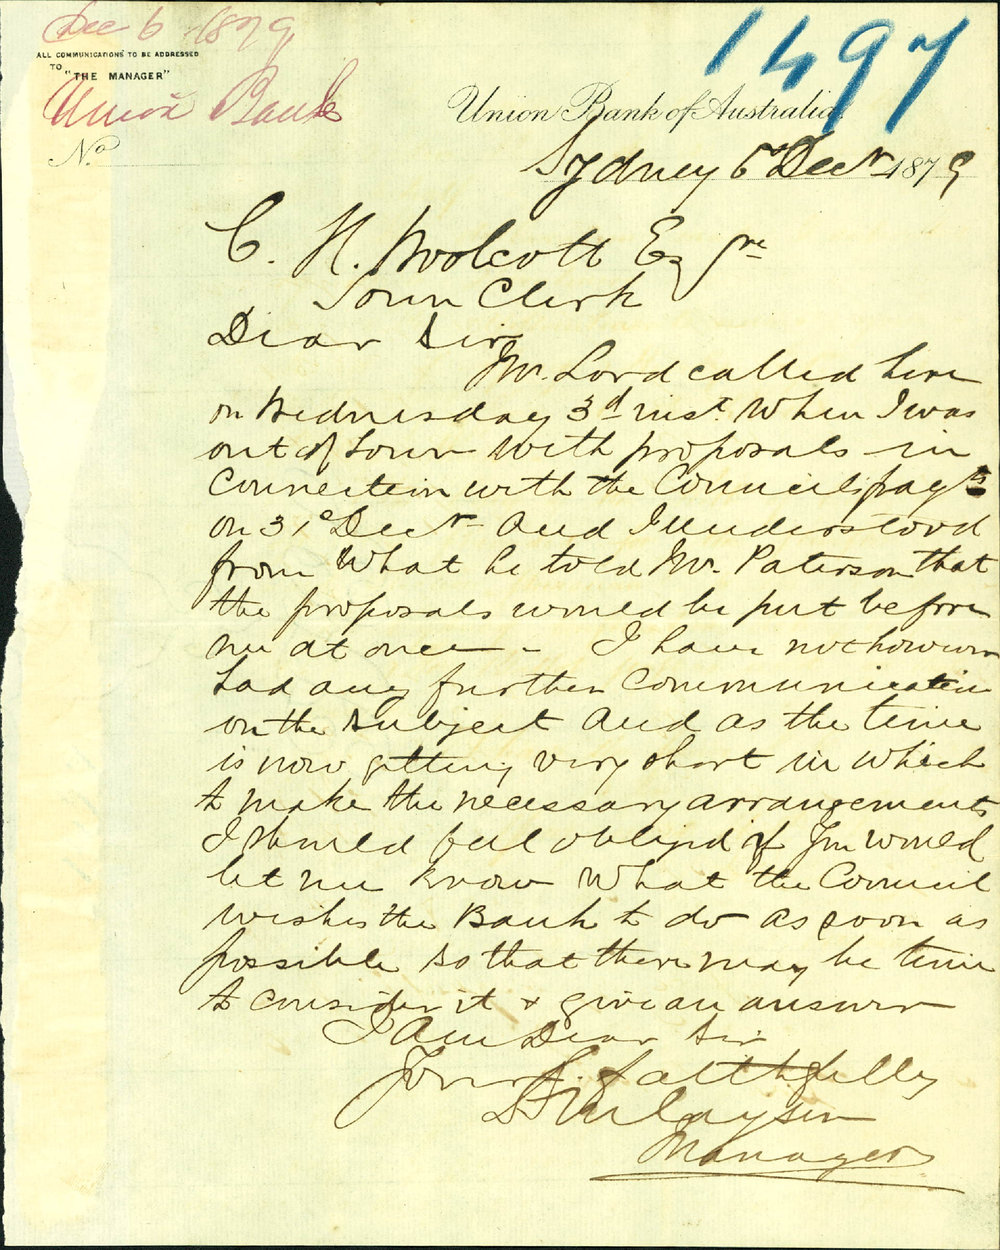 Dec 6 1879
ALL COMMUNICATIONS TO BE ADDRESSED
TO
"THE MANAGER"
Union Bank
1497
Union Bank of Australia
No
Sydney 6 Decr 1879
C. H. Woolcott Esqre
Town Clerk
Dear Sir
Mr. Lord called here
on Wednesday 3d inst. When I was
out of town with proposals in
Connection with the Council's payts
on 31st Decr and I understood
from What he told Mr. Paterson that
the proposals would be put before
me at once - I have not however
had any further Communication
on the subject and as the time
is now getting very short in which
to make the necessary arrangements
I should feel obliged if you would
let me know What the Council
wishes the Bank to do as soon as
possible so that there may be time
to consider it & give an answer
I am Dear Sir
Yours faithfully
Finlayson
Manager